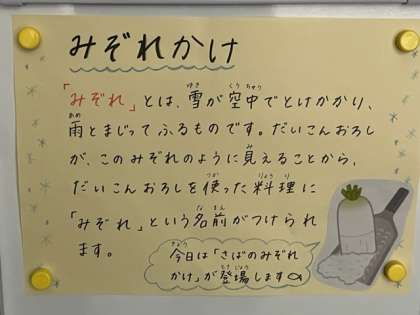 みぞれかけ
「みぞれ」とは、雪が空中でとけかかり、
雨とまじってふるものです。だいこんおろし
が、このみぞれのように見えることから、
だいこんおろしを使った料理に
「みぞれ」という名前がつけられ
ます。
今日は「さばのみぞれ
かけ」が登場します